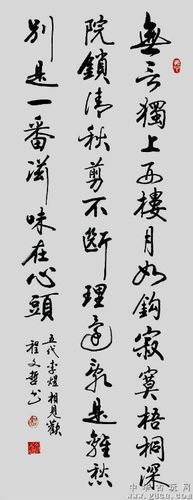 無言獨上西樓月如鉤寂寞梧桐深
院鎖清秋剪不斷理還亂是離愁
別是一番滋味在心頭
五代李煜相見歡
程文哲书
中华古玩网
www.gucn.com